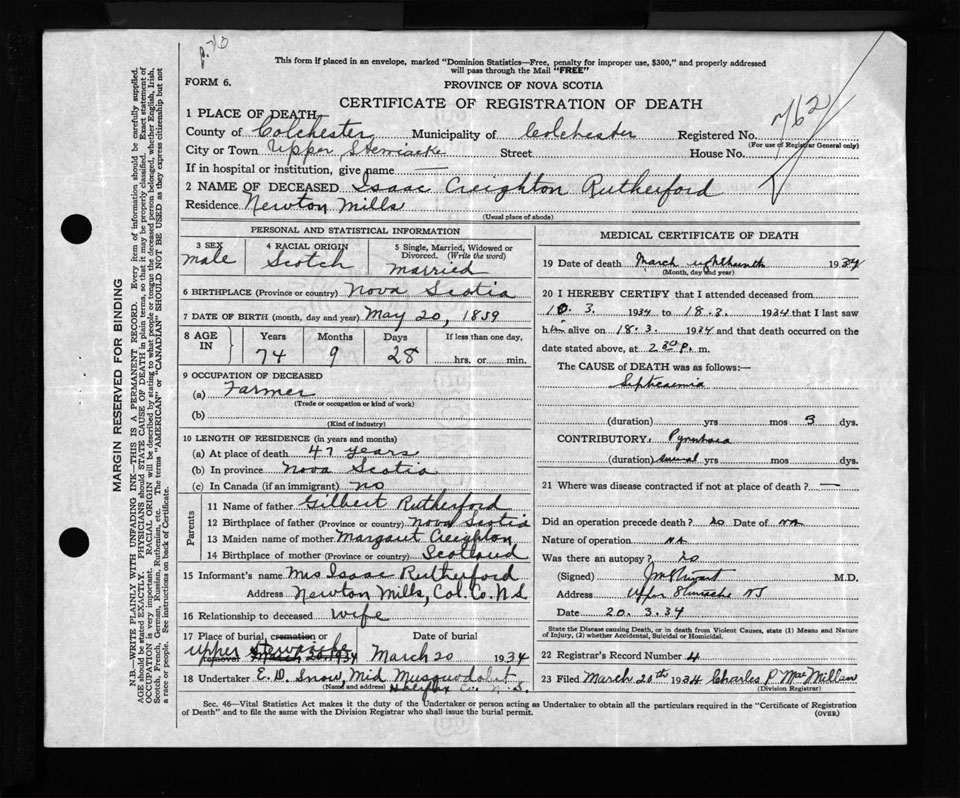 p. 70
This form if placed in an envelope, marked "Dominion Statistics—Free, penalty for improper use, $300," and properly addressed
will pass through the Mail "FREE"
FORM 6.
PROVINCE OF NOVA SCOTIA
CERTIFICATE OF REGISTRATION OF DEATH
762
1 PLACE OF DEATH—
County of Colchester Municipality of Colchester Registered No.
(For use of Registrar General only)
City or Town Upper Stewiacke Street House No.
If in hospital or institution, give name —
2 NAME OF DECEASED Isaac Creighton Rutherford
Residence Newton Mills
(Usual place of abode)
PERSONAL AND STATISTICAL INFORMATION
3 SEX 4 RACIAL ORIGIN 5 Single, Married, Widowed or
Divorced. (Write the word)
male Scotch married
6 BIRTHPLACE (Province or country) Nova Scotia
7 DATE OF BIRTH (month, day and year) May 20, 1859
8 AGE IN Years Months Days If less than one day,
74 9 28 hrs. or min.
9 OCCUPATION OF DECEASED
(a) Farmer
(Trade or occupation or kind of work)
(b)
(Kind of industry)
10 LENGTH OF RESIDENCE (in years and months)
(a) At place of death 47 years
(b) In province Nova Scotia
(c) In Canada (if an immigrant) no
Parents
11 Name of father Gilbert Rutherford
12 Birthplace of father (Province or country) Nova Scotia
13 Maiden name of mother Margaret Creighton
14 Birthplace of mother (Province or country) Scotland
15 Informant's name Mrs Isaac Rutherford
Address Newton Mills, Col. Co. N.S.
16 Relationship to deceased wife
17 Place of burial, cremation or Date of burial
removal Upper Stewiacke March 20 1934 March 20 1934
18 Undertaker E. D. Snow, Mid Musquodobit
(Name and address) Halifax Co. N.S.
MEDICAL CERTIFICATE OF DEATH
19 Date of death March eighteenth 1934
(Month, day and year)
20 I HEREBY CERTIFY that I attended deceased from
3. 1934 to 18.3. 1934 that I last saw
him alive on 18.3. 1934 and that death occurred on the
date stated above, at 2 30 P. m.
The CAUSE of DEATH was as follows:—
Septicaemia
(duration) yrs mos 3 dys
CONTRIBUTORY: Pyorrhoea
(duration) several yrs mos dys.
21 Where was disease contracted if not at place of death? —
Did an operation precede death? no Date of NA
Nature of operation NA
Was there an autopsy? no
(Signed) M.D.
Address Upper Stewiacke NS
Date 20.3.34
State the Disease causing Death, or in death from Violent Causes, state (1) Means and Nature
of Injury, (2) whether Accidental, Suicidal or Homicidal.
22 Registrar's Record Number 4
23 Filed March 20th 1934 Charles P MacMillan
(Division Registrar)
Sec. 46—Vital Statistics Act makes it the duty of the Undertaker or person acting as Undertaker to obtain all the particulars required in the "Certificate of Registration
of Death" and to file the same with the Division Registrar who shall issue the burial permit.
(OVER)
MARGIN RESERVED FOR BINDING
N.B.—WRITE PLAINLY WITH UNFADING INK—THIS IS A PERMANENT RECORD. Every item of information should be carefully supplied.
AGE should be stated EXACTLY. PHYSICIANS should STATE CAUSE OF DEATH in plain terms, so that it may be properly classified. Exact statement of
OCCUPATION is very important. RACIAL ORIGIN will be described by stating to what people or tongue the deceased person belonged, whether English, Irish,
Scotch, French, German, Russian, Ruthenian, etc. The terms "AMERICAN" or "CANADIAN" SHOULD NOT BE USED as they express citizenship but not
a race or people. See instructions on back of Certificate.